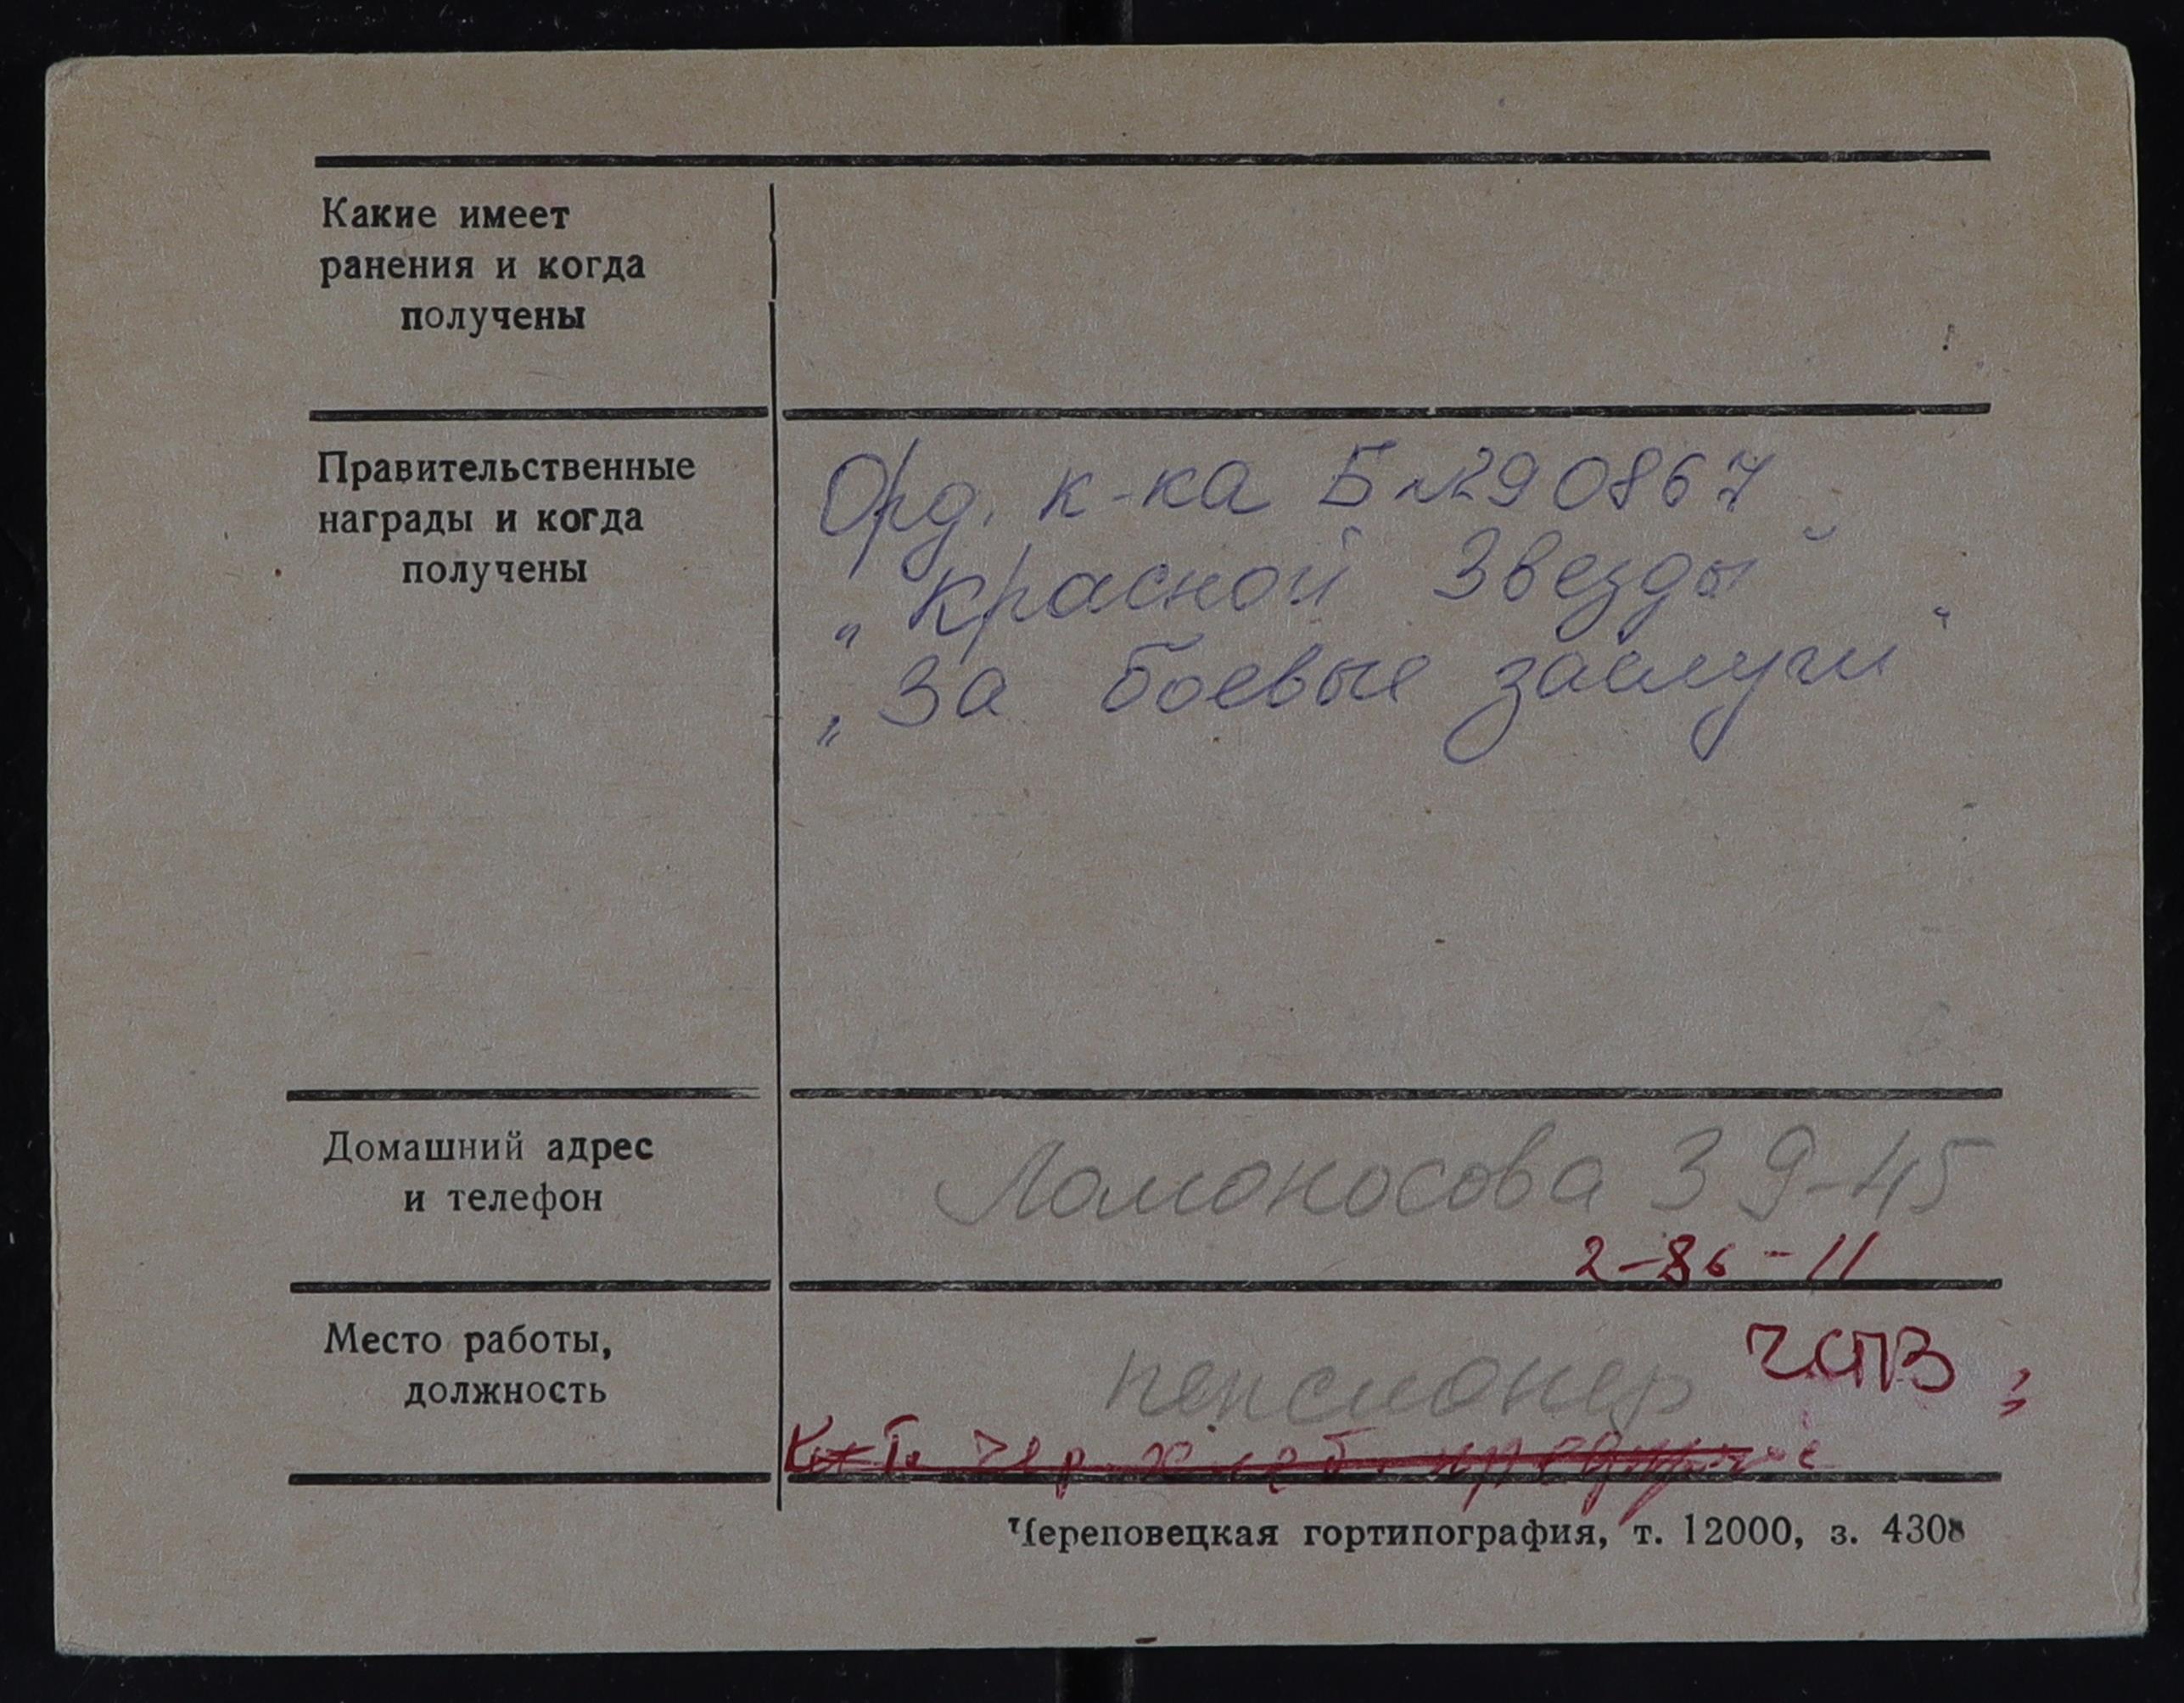 Какие имеет
ранения и когда
получены
Правительственные
награды и когда
получены
Орд. к-ка Б №290867
„Красной Звезды"
„За боевые заслуги"
Домашний адрес
и телефон
Ломоносова 39-45
2-86-11
Место работы,
должность
пенсионер
Череповецкая гортипография, т. 12000, з. 4308